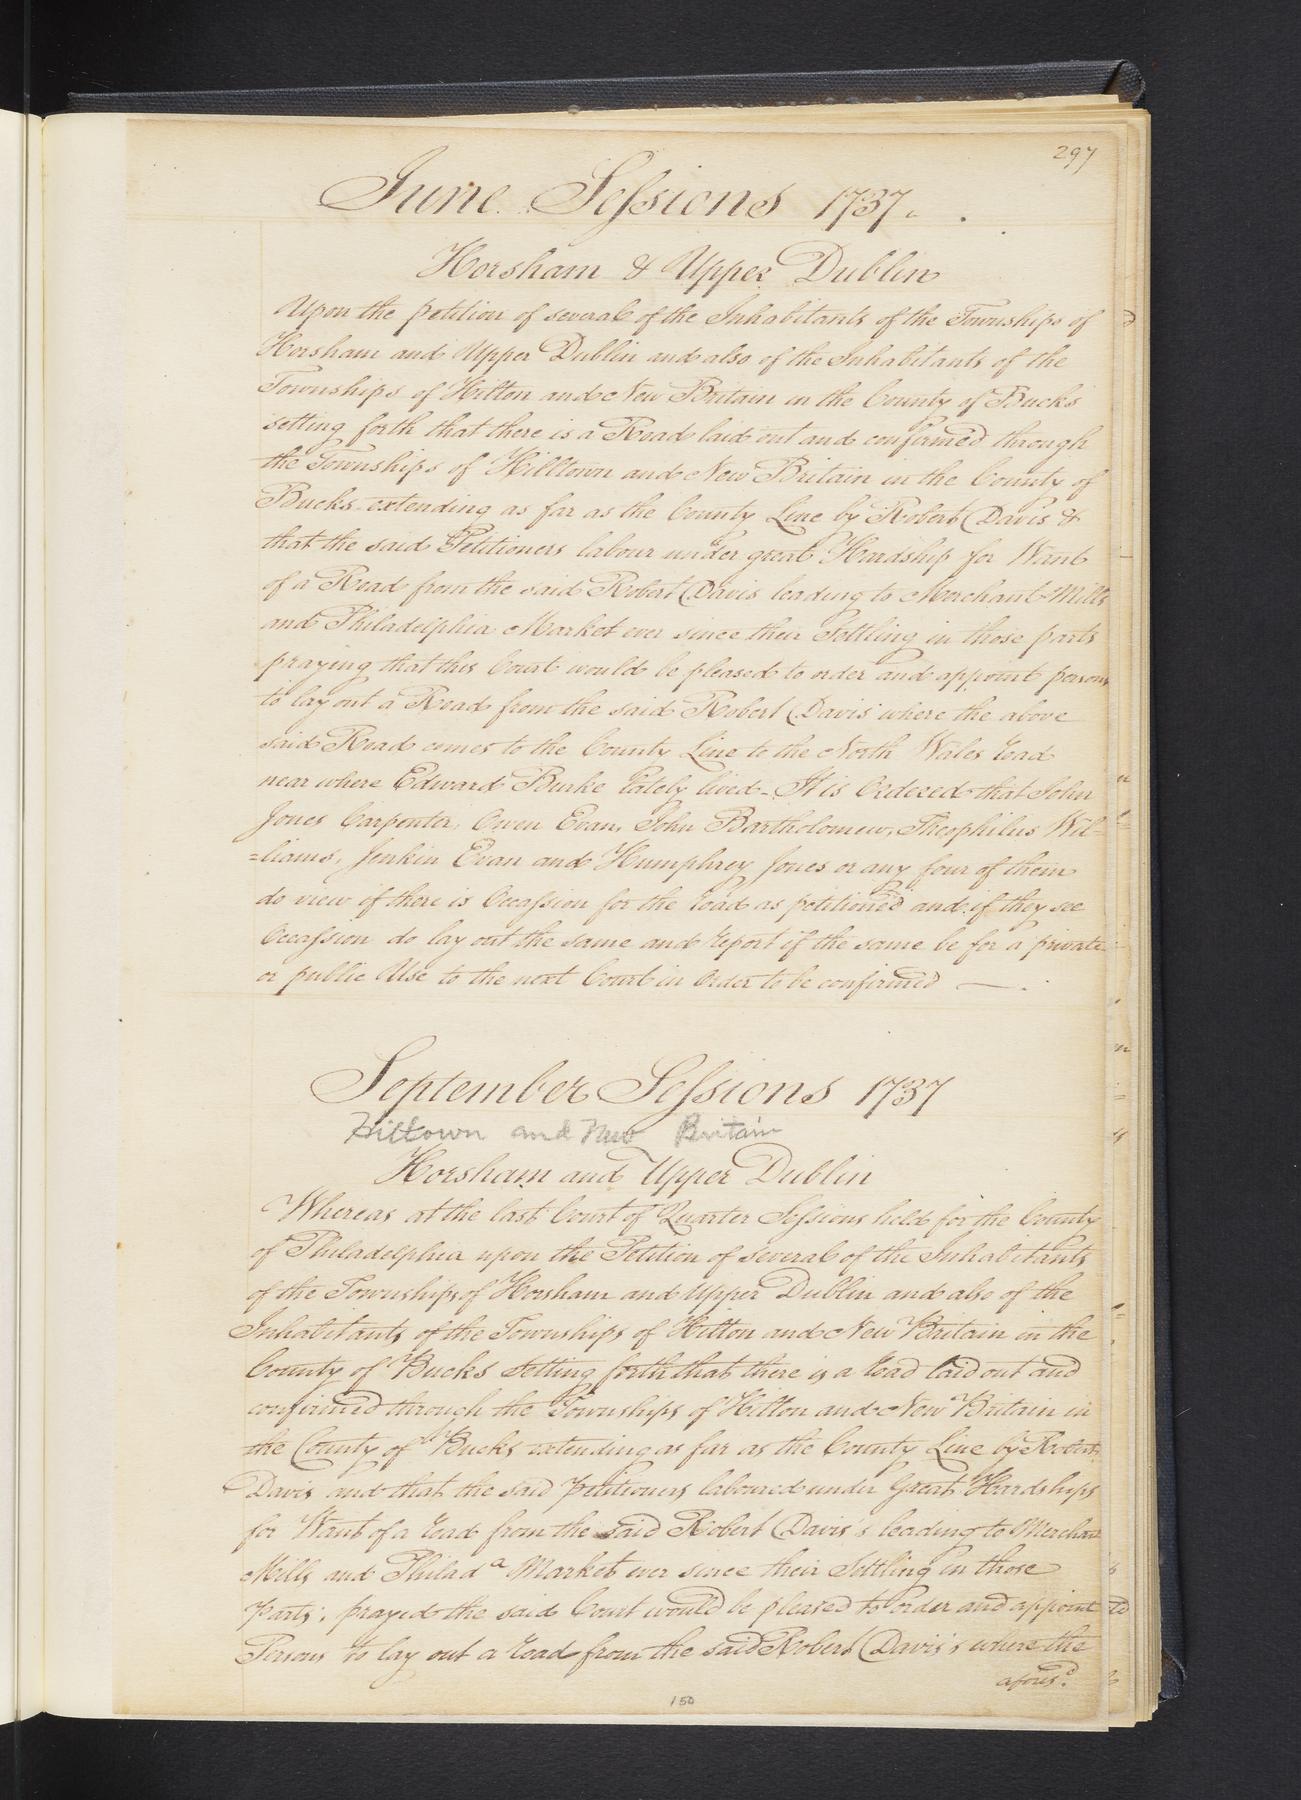 297
June Sessions 1737.
Horsham & Upper Dublin
Upon the petition of several of the Inhabitants of the Townships of
Horsham and Upper Dublin and also of the Inhabitants of the
Townships of Hilton and New Britain in the County of Bucks
setting forth that there is a Road laid out and confirmed through
the Townships of Hilltown and New Britain in the County of
Bucks extending as far as the County Line by Robert Davis &
that the said Petitioners labour under great Hardship for Want
of a Road from the said Robert Davis leading to Merchant Mills
and Philadelphia Market ever since their Settling in those parts
praying that this Court would be pleased to order and appoint persons
to lay out a Road from the said Robert Davis' where the above
said Road comes to the County Line to the North Wales road
near where Edward Burke lately lived - It is Ordered that John
Jones Carpenter, Owen Evan, John Bartholomew, Theophilus Wil-
=liams, Jenkin Evan and Humphrey Jones or any four of them
do view if there is Occassion for the road as petitioned and if they see
Occassion do lay out the same and report if the same be for a private
or public Use to the next Court in Order to be confirmed —.
September Sessions 1737
Hilltown and New Britain
Horsham and Upper Dublin
Whereas at the last Court of Quarter Sessions held for the County
of Philadelphia upon the Petition of several of the Inhabitants
of the Townships of Horsham and Upper Dublin and also of the
Inhabitants of the Townships of Hilton and New Britain in the
County of Bucks Setting forth that there is a road laid out and
confirmed through the Townships of Hilton and New Britain in
the County of Bucks extending as far as the County Line by Robert
Davis and that the said petitioners laboured under Great Hardships
for Want of a road from the said Robert Davis's leading to Merchant
Mills and Philad.ª Market ever since their Settling in those
Parts; prayed the said Court would be pleased to order and appoint
Persons to lay out a road from the said Robert Davis's where the
afores.d
150